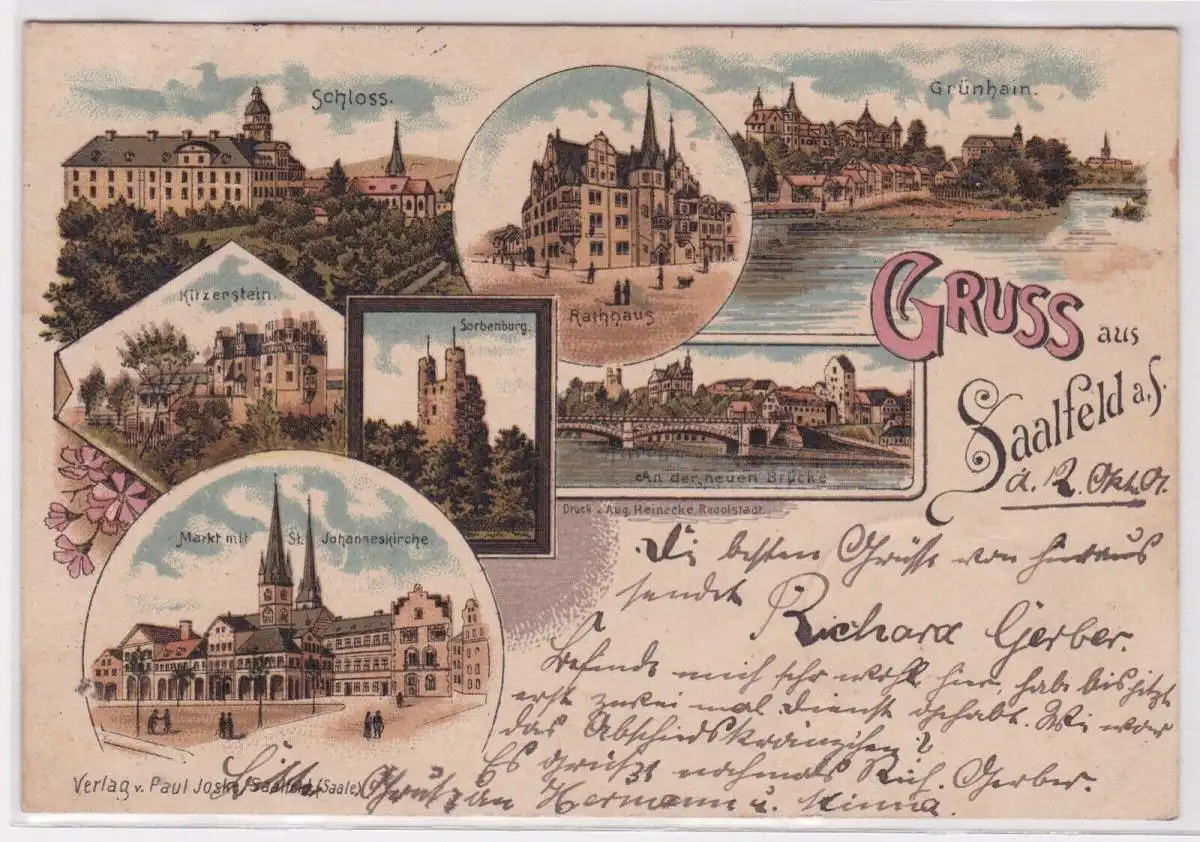 Schloss.
Grünhain.
Kitzerstein.
Rathhaus
Sorbenburg.
GRUSS aus
Saalfeld a/S.
d. 12. Okt. 01.
An der neuen Brücke
Druck v. Aug. Heinecke, Rudolstadt.
Markt mit St. Johanneskirche
Die besten Grüße von hieraus
sendet Richard Gerber.
Befinde mich sehr wohl hier, habe bis jetzt
erst zwei mal Dienst gehabt. Wie war
das Abschiedskränzchen?
Es grüßt nochmals Rich. Gerber.
Grüße an Hermann u. Minna.
Verlag v. Paul Joske, Saalfeld (Saale)